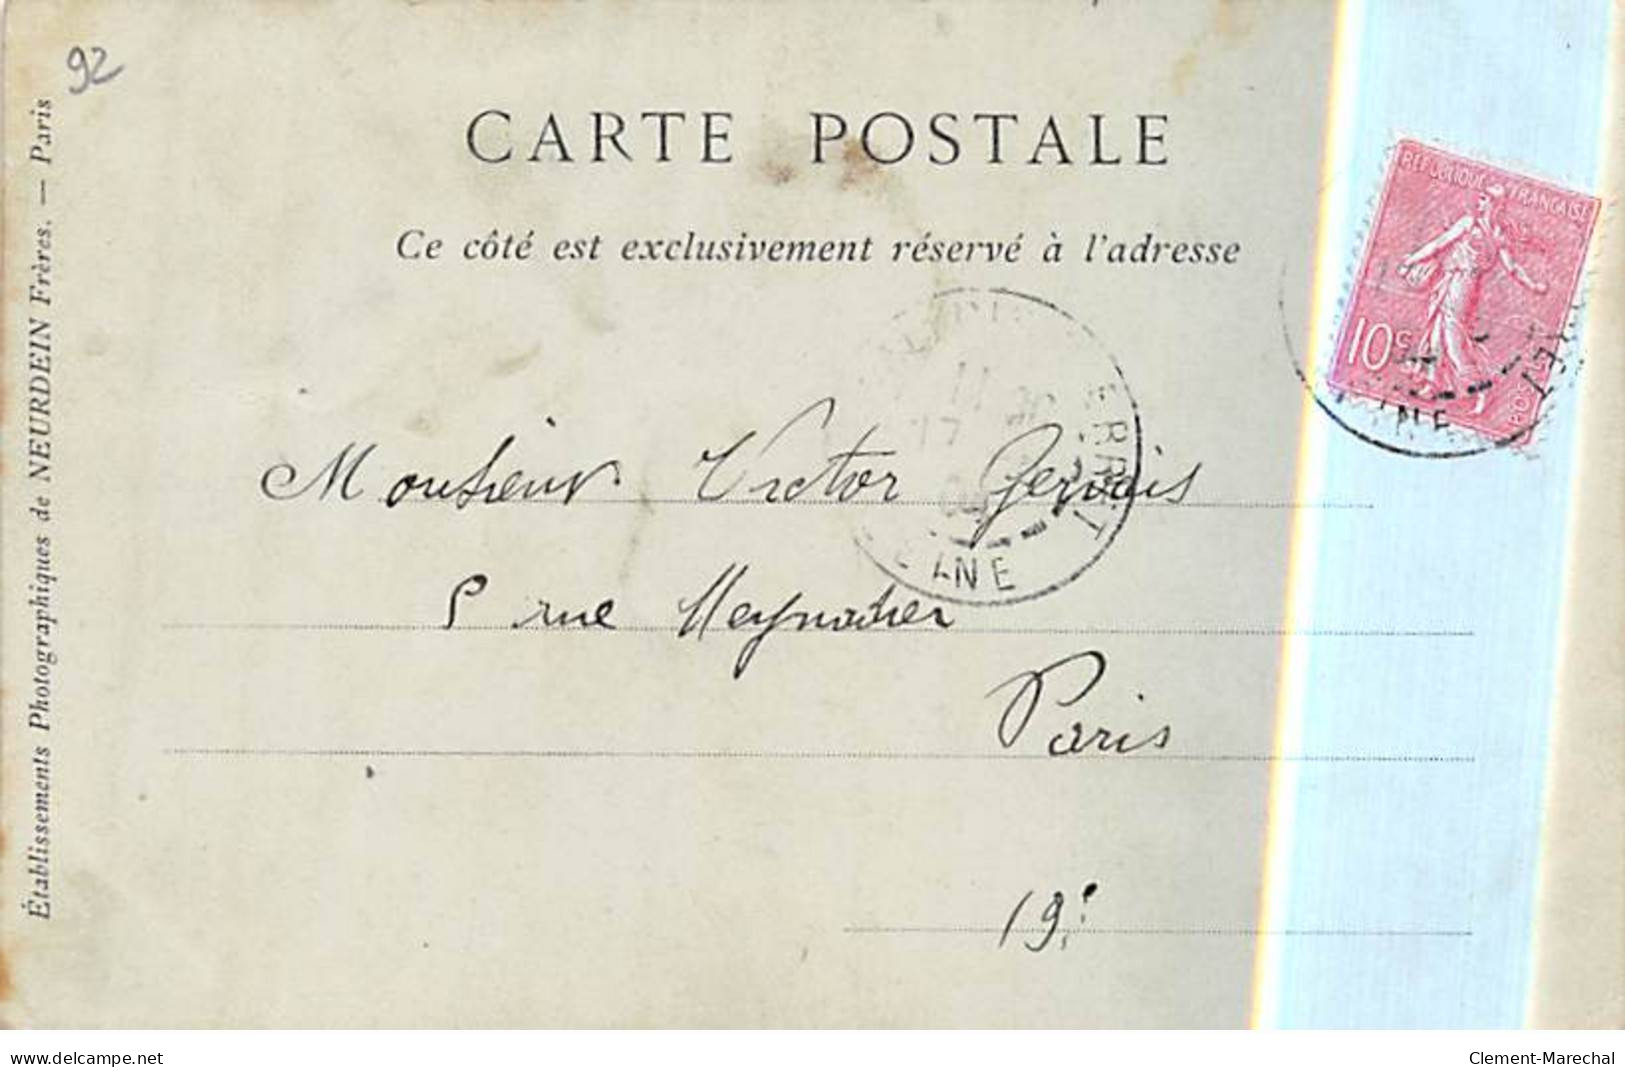 92
CARTE POSTALE
Ce côté est exclusivement réservé à l'adresse
Établissements Photographiques de NEURDEIN Frères. — Paris
RÉPUBLIQUE FRANÇAISE
10c
POS
ERRET
NE
Monsieur Victor Gervais
8 rue Meynadier
Paris
19e
www.delcampe.net
Clement-Marechal